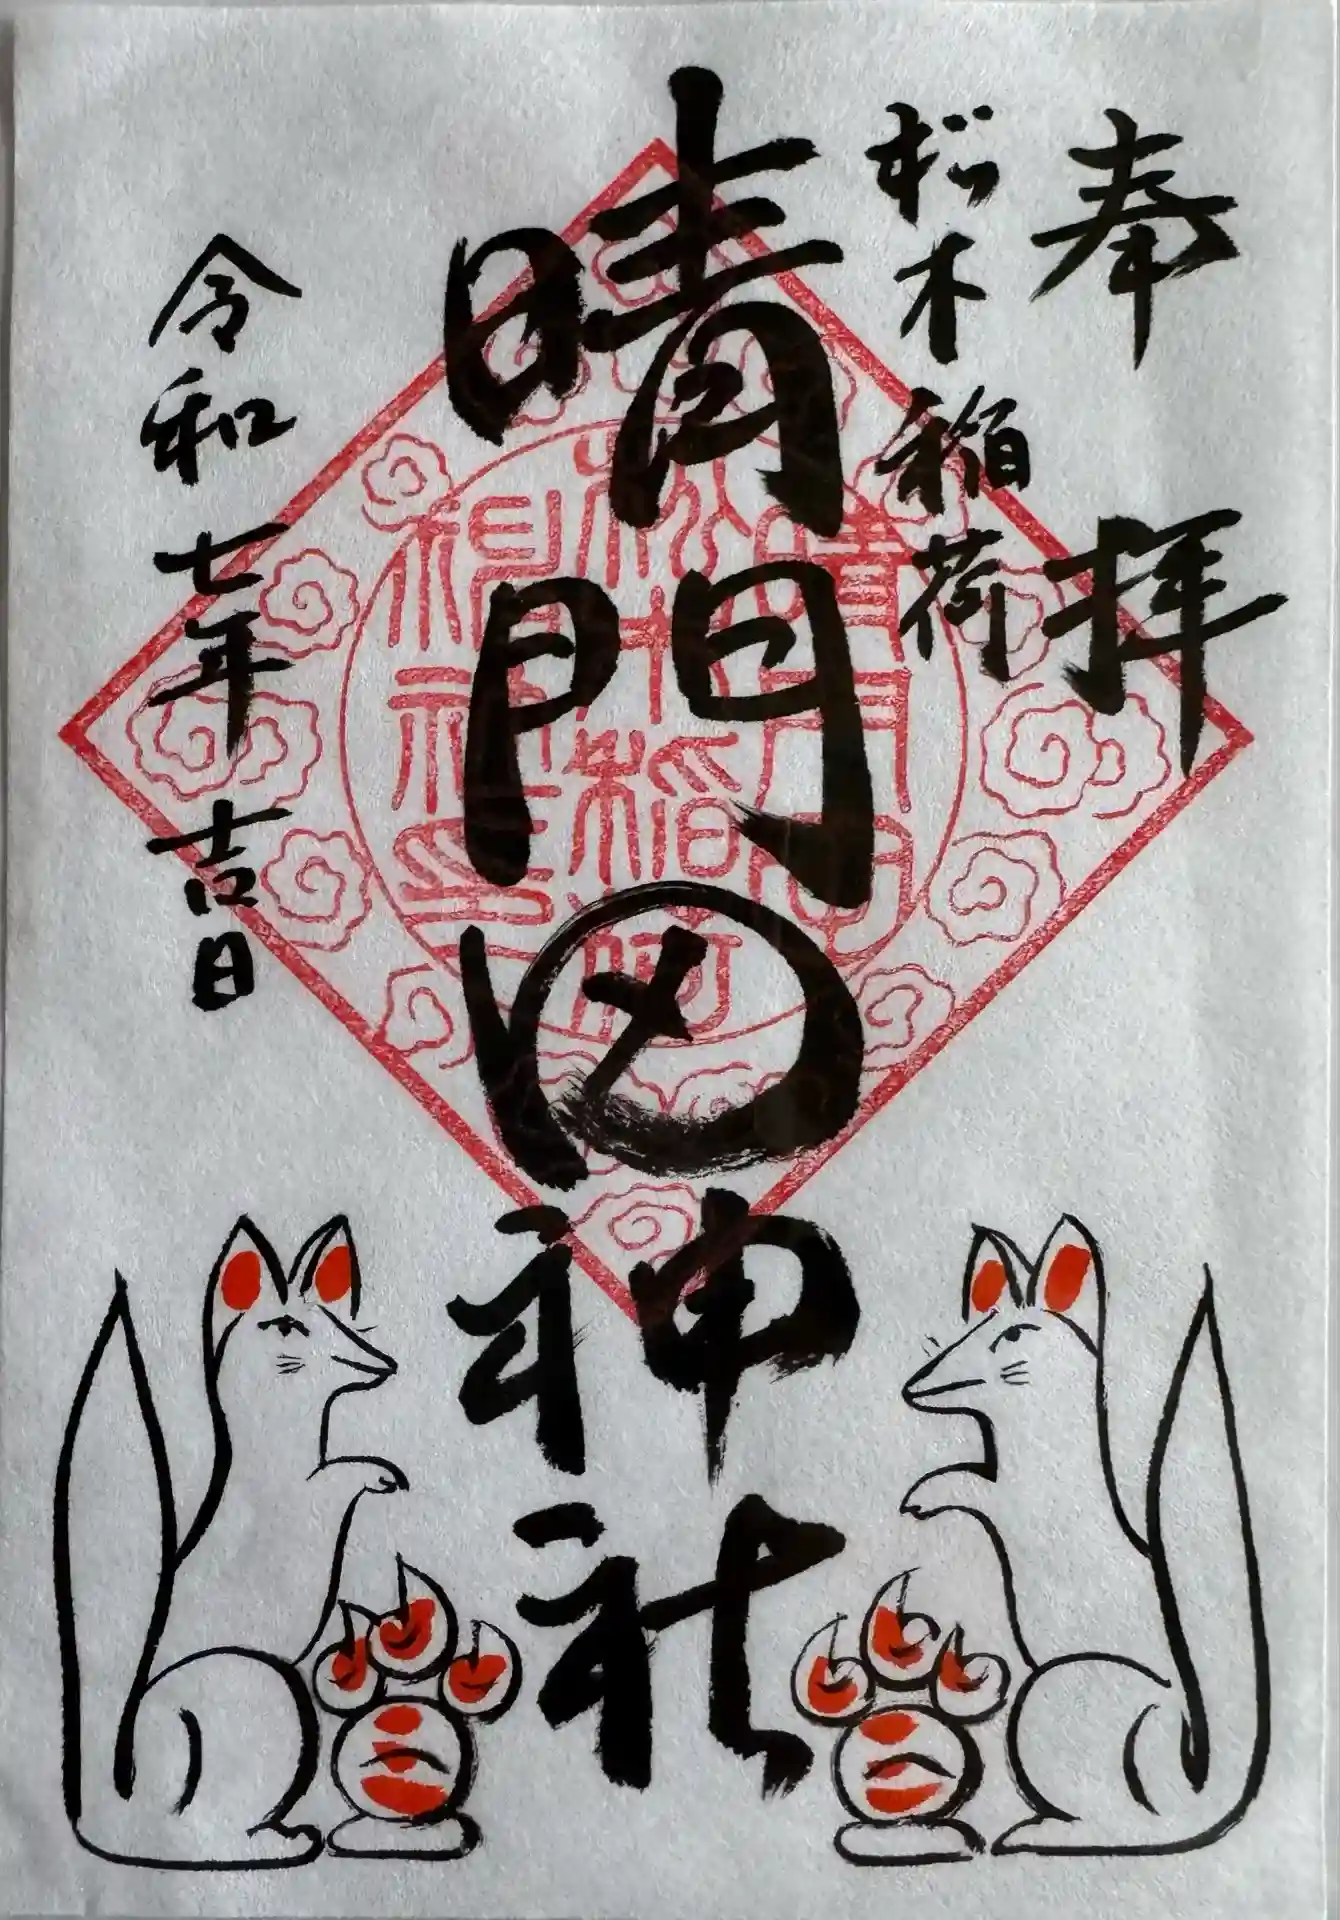 奉拝
桜木稲荷
晴門田神社
令和七年吉日
晴門田